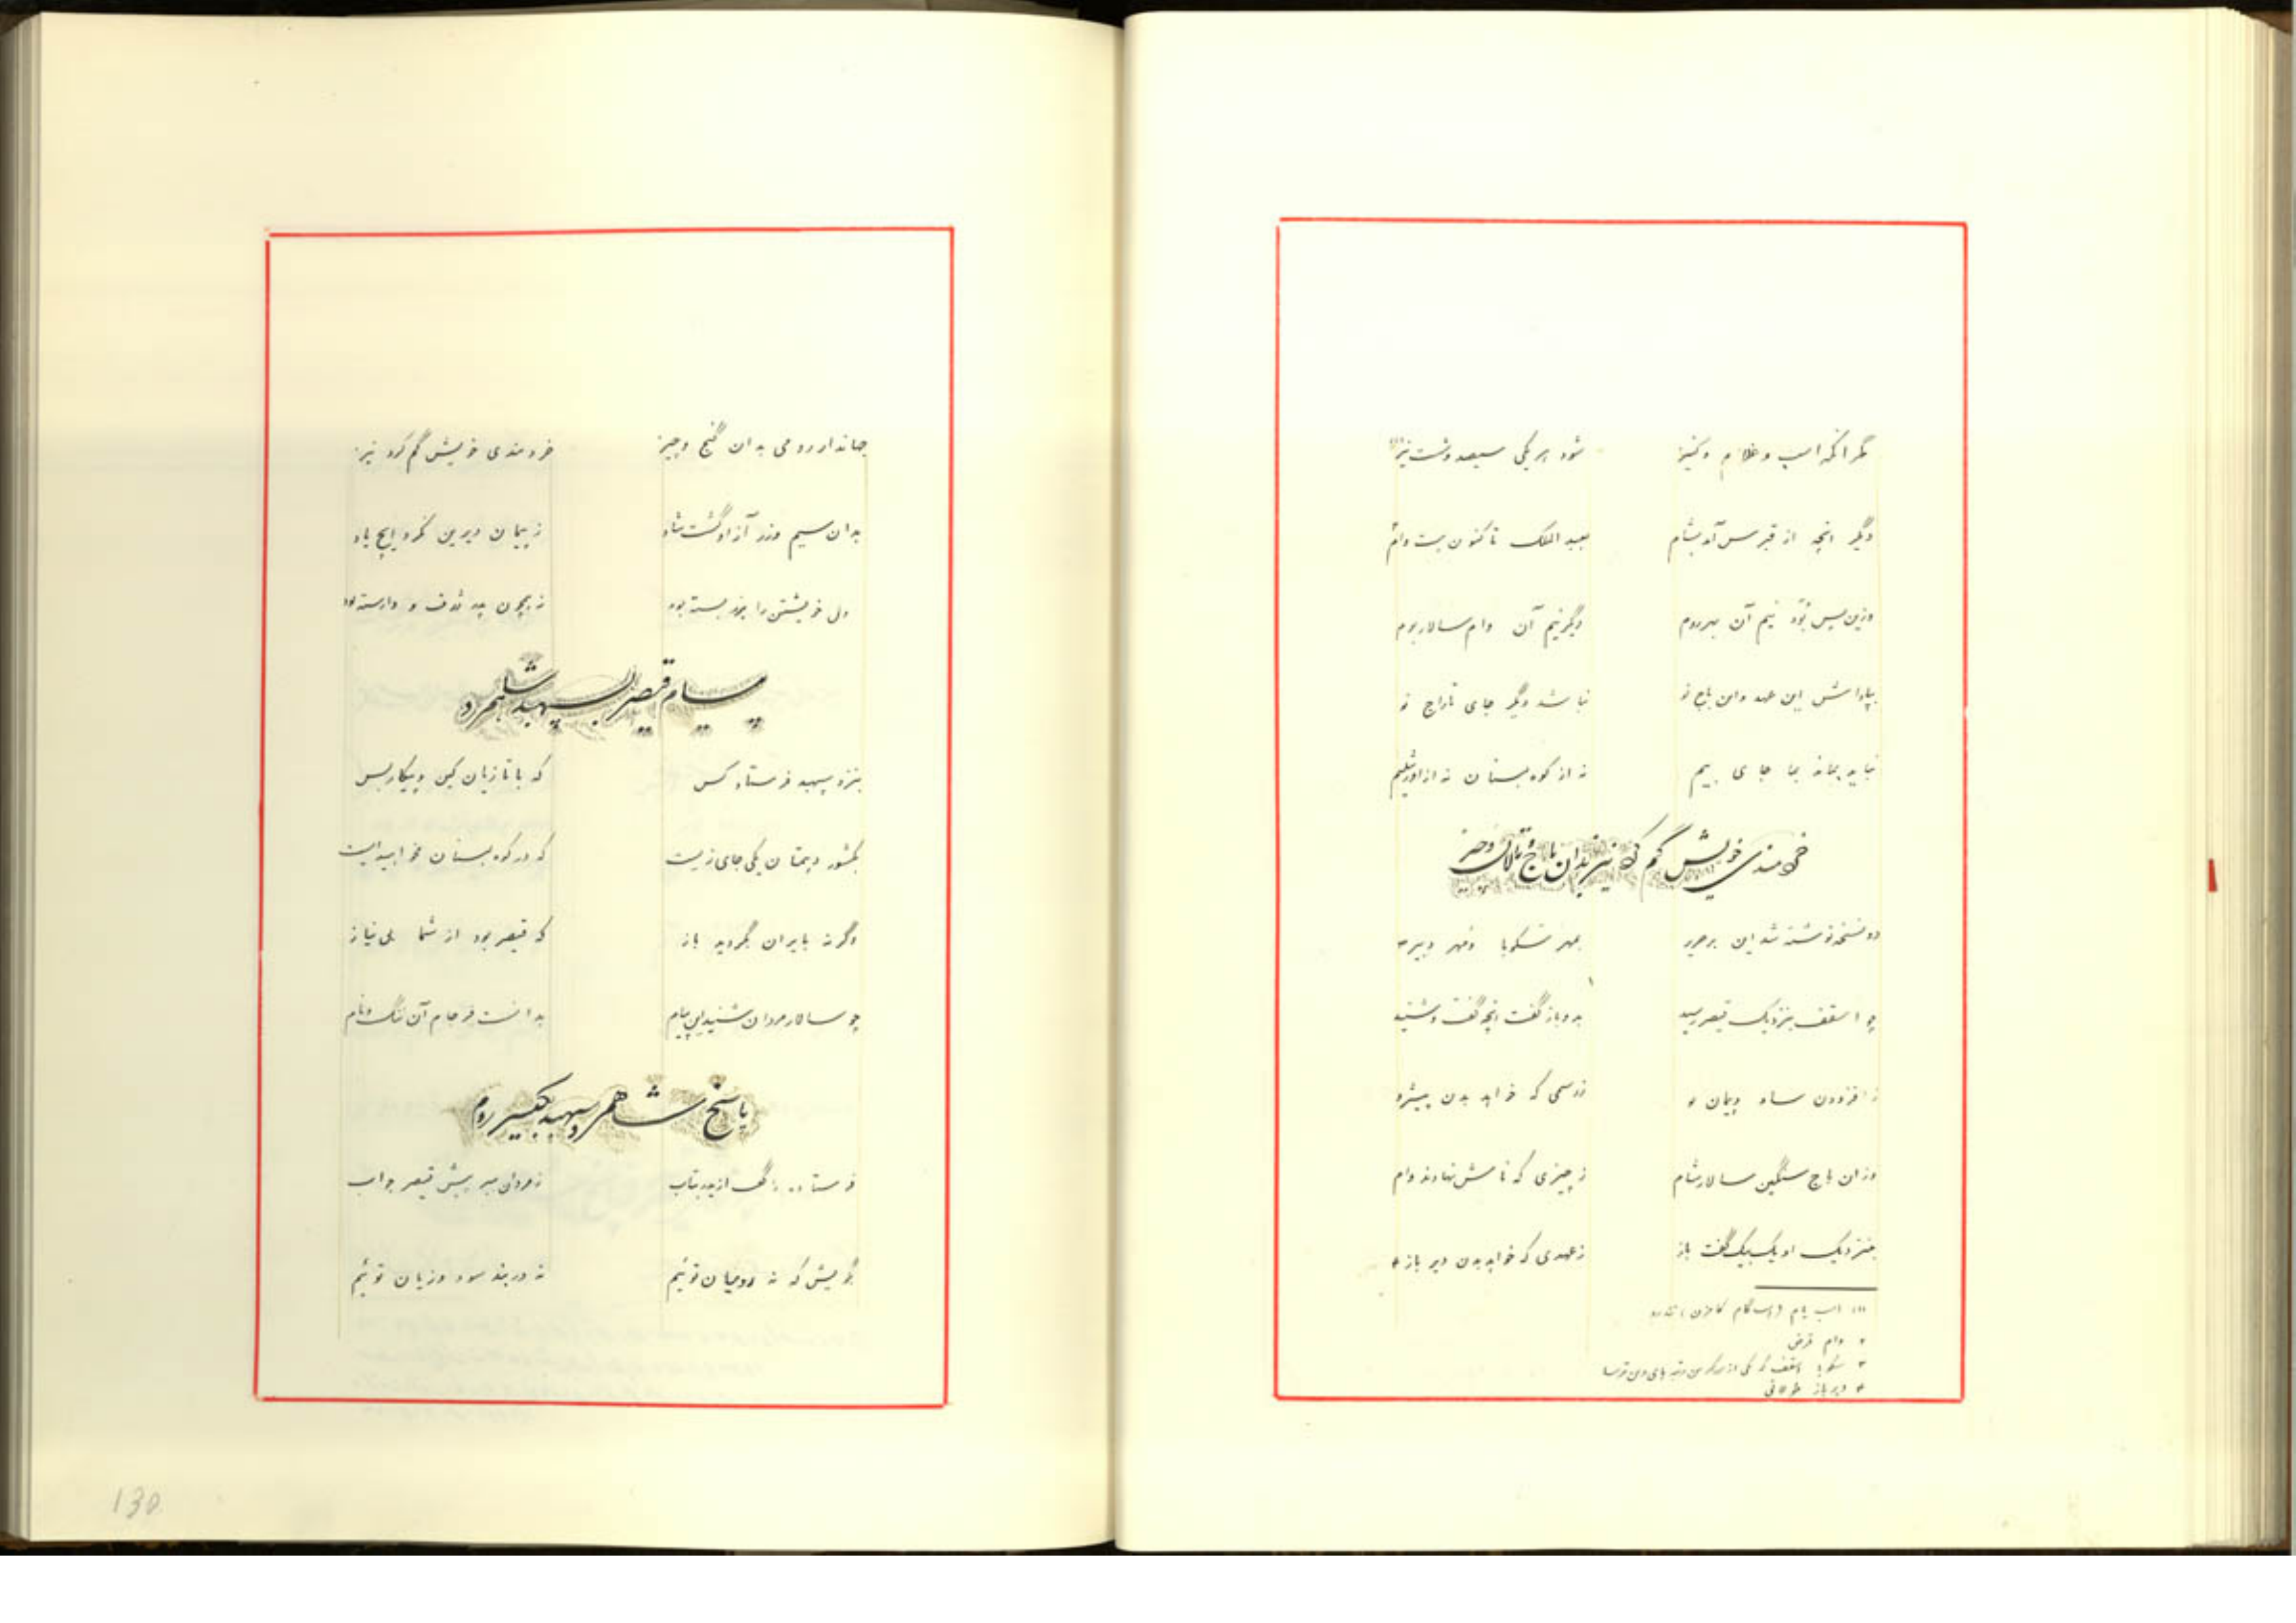 مگر آنکه اسب و غلام و کنیز شود هر یکی سیصد و شست نیز (۱)
دگر انچه از قبرس آمد بشام بعبدالملک تا کنون بست وام ۲
وزین پس بود نیم آن بهر روم دگر نیم آن وام سالار بوم
بپاداش این عهد واین باج نو نباشد دگر جای تاراج نو
نباید بماند بما جای بیم نه از کوهبستان نه از اورشلیم
خردمندی خویش گم کرد نیز بدان باج و تالان و چیز
دو نسخه نوشته شد این بر حریر بمهر سکوبا و مهر دبیر ۳
چو اسقف بنزدیک قیصر رسید بدو باز گفت انچه گفت و شنید
ز افزودن ساو و پیمان نو ز رسمی که خواهد بدن پیشرو
وزان باج سنگین سالار شام ز چیزی که نامش نهادند وام
بنزدیک او یک بیک گفت باز ز عهدی که خواهد بدن دیر باز ۴
(۱) اسب پام
۲ وام قرض
۳ سکوبا اسقف که یکی از بزرگترین رتبه های دین ترسا
۴ دیرباز طولانی
جهاندار رومی بدان گنج و چیز خردمندی خویش گم کرد نیز
بدان سیم و زر آزاد گشت شاه ز پیمان دیرین نکرد ایچ یاد
دل خویشتن را بزر بسته بود نه همچون پدر ژرف و وارسته بود
پیام قیصر به سپهبد شاهمرد
بنزد سپهبد فرستاد کس که با تازیان کین و پیکار بس
بکشور دهمتان یکی جای زیست که در کوهبستان نخواهید ایست
وگرنه بایران بگردید باز که قیصر بود از شما بی نیاز
چو سالار مردان شنید این پیام بدانست فرجام آن ننگ و نام
پاسخ شاهمرد سپهبد بقیصر روم
فرستاده را گفت از ایدر بتاب ز مردان ببر پیش قیصر جواب
بگویش که نه رومیان توئیم نه در بند سود و زیان توئیم
130